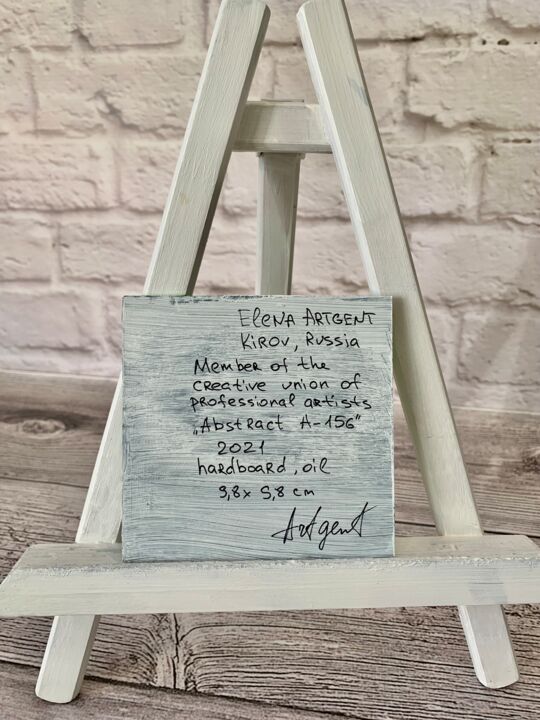 Elena Artgent
Kirov, Russia
Member of the
creative union of
professional artists
„Abstract A-156"
2021
hardboard, oil
9,8x 9,8 cm
Artgent